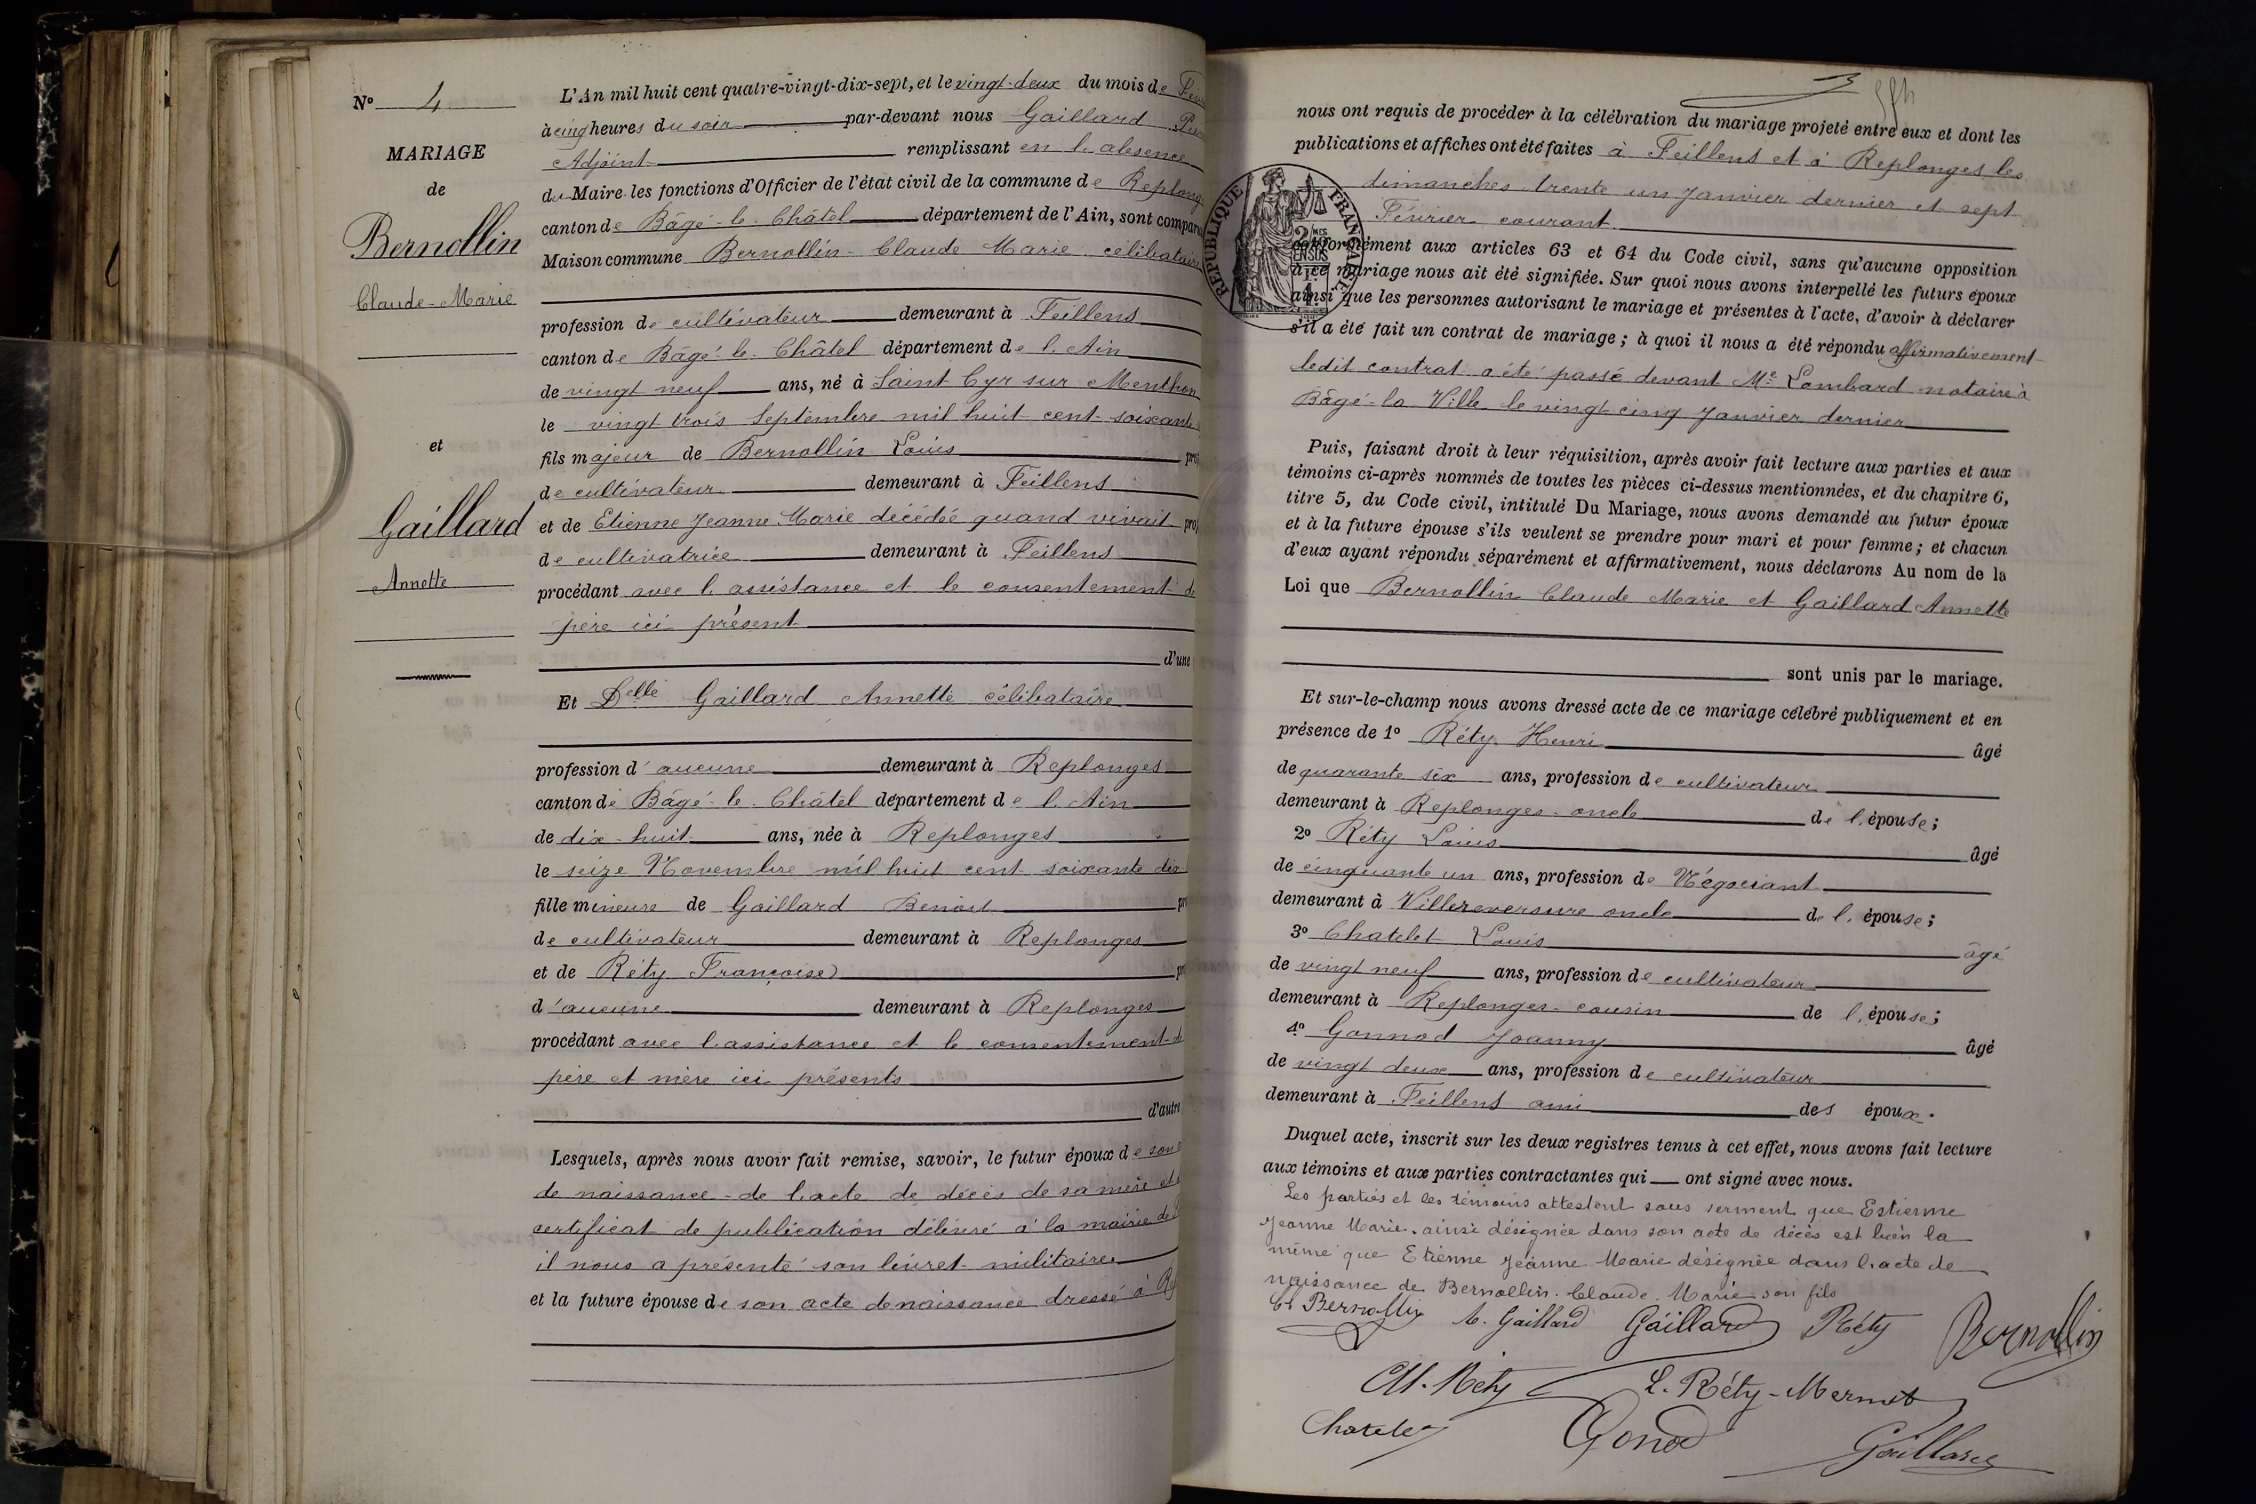 N° 4
MARIAGE
de
Bernollin
Claude-Marie
et
Gaillard
Annette
L'An mil huit cent quatre-vingt-dix-sept, et le vingt-deux du mois de
à cinq heures du soir par-devant nous Gaillard
Adjoint remplissant en l'absence
du Maire les fonctions d'Officier de l'état civil de la commune de Replong
canton de Bâgé-le-Châtel département de l'Ain, sont comparu
Maison commune Bernollin Claude Marie célibataire
profession de cultivateur demeurant à Feillens
canton de Bâgé-le-Châtel département de l'Ain
de vingt neuf ans, né à Saint Cyr sur Menthon
le vingt trois Septembre mil huit cent soixante
fils majeur de Bernollin Louis
de cultivateur demeurant à Feillens
et de Etienne Jeanne Marie décédée quand vivait prof
de cultivatrice demeurant à Feillens
procédant avec l'assistance et le consentement de
père ici présent
d'une
Et Delle Gaillard Annette célibataire
profession d'aucune demeurant à Replonges
canton de Bâgé-le-Châtel département de l'Ain
de dix-huit ans, née à Replonges
le seize Novembre mil huit cent soixante dix
fille mineure de Gaillard Benoit
de cultivateur demeurant à Replonges
et de Réty Françoise
d'aucune demeurant à Replonges
procédant avec l'assistance et le consentement de
père et mère ici présents
d'autre
Lesquels, après nous avoir fait remise, savoir, le futur époux de son
de naissance - de l'acte de décès de sa mère et
certificat de publication délivré à la mairie de
il nous a présenté son livret militaire
et la future épouse de son acte de naissance dressé à
nous ont requis de procéder à la célébration du mariage projeté entre eux et dont les
publications et affiches ont été faites à Feillens et à Replonges les
dimanches trente un Janvier dernier et sept
Février courant
RÉPUBLIQUE FRANÇAISE
conformément aux articles 63 et 64 du Code civil, sans qu'aucune opposition
à ce mariage nous ait été signifiée. Sur quoi nous avons interpellé les futurs époux
ainsi que les personnes autorisant le mariage et présentes à l'acte, d'avoir à déclarer
s'il a été fait un contrat de mariage; à quoi il nous a été répondu affirmativement
ledit contrat a été passé devant Me Lombard notaire à
Bâgé-la Ville le vingt cinq Janvier dernier
Puis, faisant droit à leur réquisition, après avoir fait lecture aux parties et aux
témoins ci-après nommés de toutes les pièces ci-dessus mentionnées, et du chapitre 6,
titre 5, du Code civil, intitulé Du Mariage, nous avons demandé au futur époux
et à la future épouse s'ils veulent se prendre pour mari et pour femme; et chacun
d'eux ayant répondu séparément et affirmativement, nous déclarons Au nom de la
Loi que Bernollin Claude Marie et Gaillard Annette
sont unis par le mariage.
Et sur-le-champ nous avons dressé acte de ce mariage célébré publiquement et en
présence de 1° Réty Henri âgé
de quarante six ans, profession de cultivateur
demeurant à Replonges oncle de l'épouse;
2° Réty Louis âgé
de cinquante un ans, profession de Négociant
demeurant à Villereversure oncle de l'épouse;
3° Chatelet Louis âgé
de vingt neuf ans, profession de cultivateur
demeurant à Replonges cousin de l'épouse;
4° Gonnod Joanny âgé
de vingt deux ans, profession de cultivateur
demeurant à Feillens ami des époux.
Duquel acte, inscrit sur les deux registres tenus à cet effet, nous avons fait lecture
aux témoins et aux parties contractantes qui ont signé avec nous.
Les parties et les témoins attestent sous serment que Estienne
Jeanne Marie, ainsi désignée dans son acte de décès est bien la
même que Etienne Jeanne Marie désignée dans l'acte de
naissance de Bernollin Claude Marie son fils
Cl Bernollin A. Gaillard Gaillard Réty Bernollin
Réty L. Réty-Mermet
Chatelet Gonod Gaillard